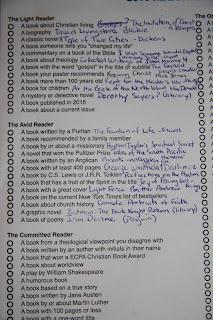 The Light Reader
A book about Christian living The Imitation of Christ
A biography David Livingstone
A classic novel Tale of Two Cities - Dickens
A book someone tells you "changed my life"
A commentary on a book of the Bible
A book about theology
A book with the word "gospel" in the title or subtitle
A book your pastor recommends
A book more than 100 years old
A book for children At the Back of the North Wind MacDonald
A mystery or detective novel Dorothy Sayers (library)
A book published in 2016
A book about a current issue
The Avid Reader
A book written by a Puritan The Fountain of Life - Flavel
A book recommended by a family member
A book by or about a missionary Hudson Taylor's Spiritual Secret
A novel that won the Pulitzer Prize Tales of the South Pacific
A book written by an Anglican
A book with at least 400 pages
A book by C.S. Lewis or J.R.R. Tolkien Reflections on the Psalms
A book that has a fruit of the Spirit in the title
A book with a great cover
A book on the current New York Times list of bestsellers
A book about church history
A graphic novel Batman: The Dark Knight Returns (library)
A book of poetry John Donne (Penguin)
The Committed Reader
A book from a theological viewpoint you disagree with
A book written by an author with initials in their name
A book that won a ECPA Christian Book Award
A book about worldview
A play by William Shakespeare
A humorous book
A book based on a true story
A book written by Jane Austen
A book by or about Martin Luther
A book with 100 pages or less
A book with a one-word title